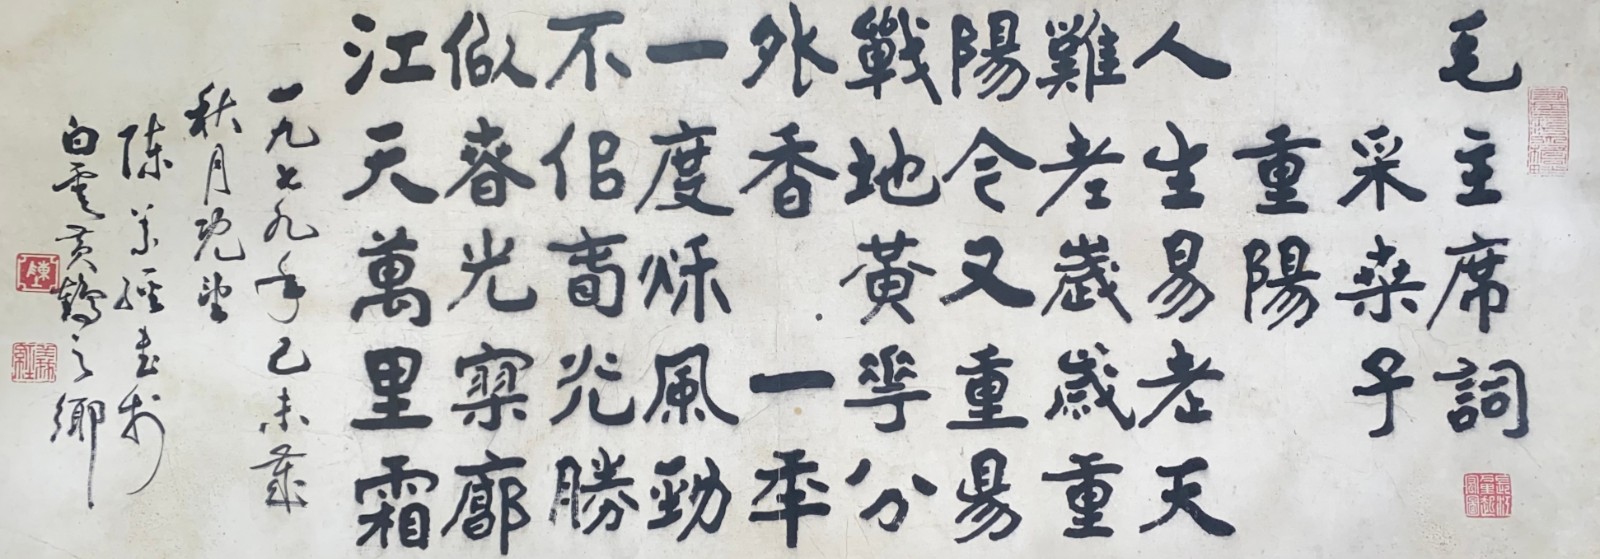 毛主席詞
采桑子
重陽
人生易老天
難老歲歲重
陽今又重昜
戰地黃華分
外香一年
一度秋風勁
不佀旾光勝
似春光寥廓
江天萬里霜
一九七九年己未歲
秋月既望
陳義經書於
白雲黃鶴之鄉
陳
義經